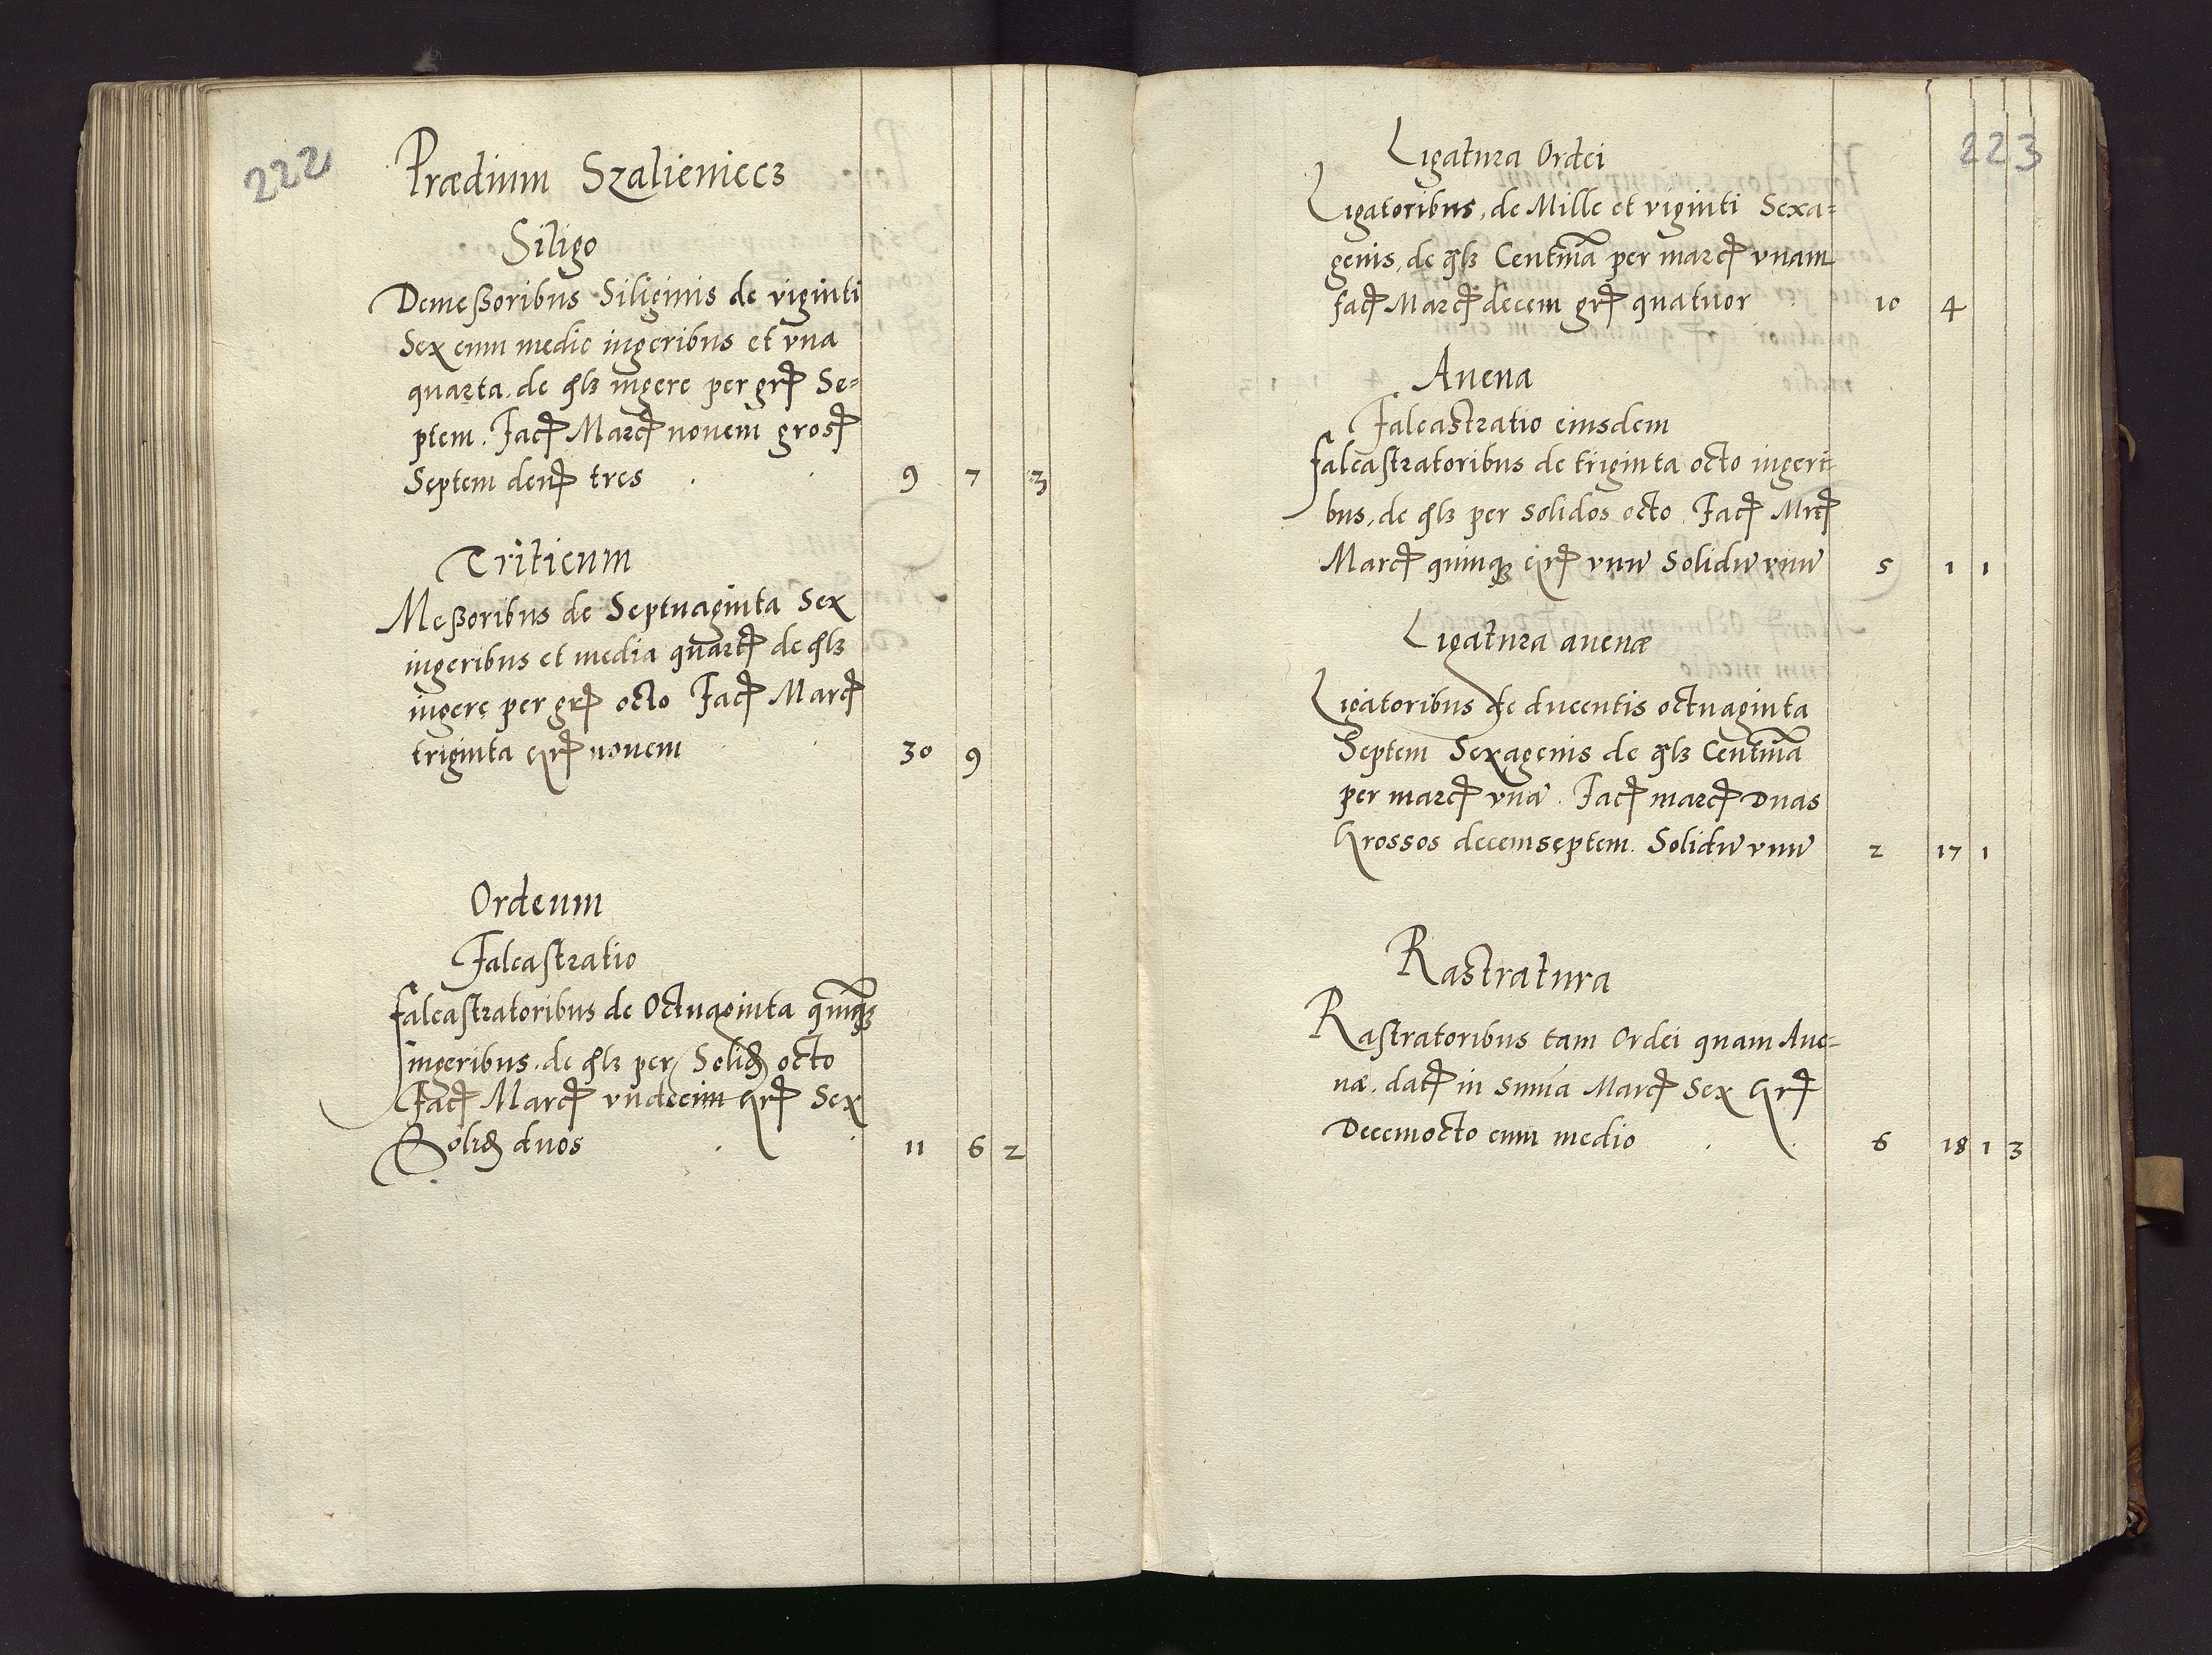 222
Prædium Szalieniecz
Siligo
Demeßoribus Siliginis de viginti
Sex cum medio iugeribus et vna
quarta. de qlꝫ iugere per grꝭ Se=
ptem. Facꝭ Marcꝭ nouem grosꝭ
Septem denꝭ tres 9 7 3
Triticum
Meßoribus de Septuaginta Sex
iugeribus et media quartꝭ de qlꝫ
iugere per grꝭ octo Facꝭ Marcꝭ
triginta Grꝭ nouem 30 9
Ordeum
Falcastratio
falcastratoribus de Octuaginta quinqꝫ
iugeribus. de qlꝫ per Solidꝭ octo
Facꝭ Marcꝭ vndecim Grꝭ Sex
Solidꝭ duos 11 6 2
223
Ligatura Ordei
Ligatoribus, de Mille et viginti Sexa=
genis, de qlꝫ Centĩa per marcꝭ vnam
facꝭ Marcꝭ decem grꝭ quatuor 10 4
Auena
Falcastratio eiusdem
falcastratoribus de triginta octo iugeri=
bus, de qlꝫ per solidos octo Facꝭ Mrcꝭ
Marcꝭ quinqꝫ Grꝭ vnũ Solidũ vnũ 5 1 1
Ligatura auenæ
Ligatoribus de ducentis octuaginta
Septem Sexagenis de qlꝫ Centĩa
per marcꝭ vnã. Facꝭ marcꝭ Duas
Grossos decemseptem. Solidũ vnũ 2 17 1
Rastratura
Rastratoribus tam Ordei quam Aue=
næ. datꝭ in Sum̃a Marcꝭ Sex Grꝭ
Decemocto cum medio 6 18 1 3